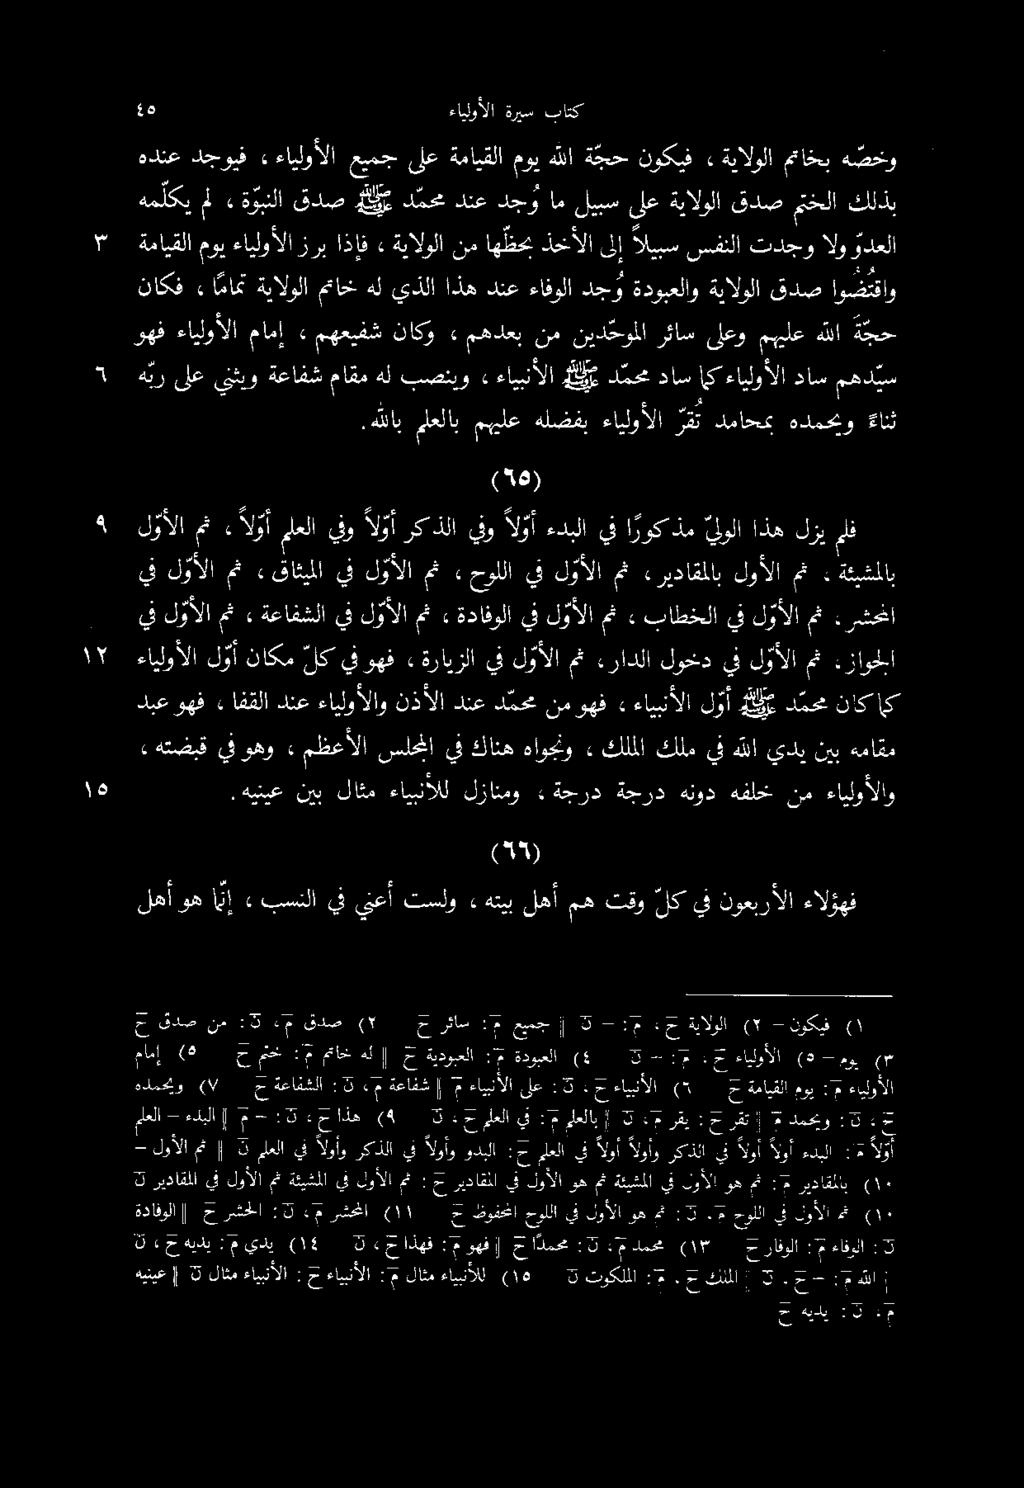 كتاب سيرة الأولياء ٤٥
وخصّه بخاتم الولاية ، فيكون حجّة الله يوم القيامة على جميع الأولياء ، فيوجد عنده
بذلك الختم صدق الولاية على سبيل ما وُجد عند محمّد ﷺ صدق النبوّة ، لم يكلّمه
العدوّ ولا وجدت النفس سبيلاً إلى الأخذ بحظّها من الولاية ، فإذا برز الأولياء يوم القيامة ٣
واقتُضُوا صدق الولاية والعبودة وُجد الوفاء عند هذا الذي له خاتم الولاية تماماً ، فكان
حجّةَ الله عليهم وعلى سائر الموحّدين من بعدهم ، وكان شفيعهم ، إمام الأولياء فهو
سيّدهم ساد الأولياء كما ساد محمّد ﷺ الأنبياء ، وينصب له مقام شفاعة ويثني على ربّه ٦
ثناءً ويحمده بمحامد تُقرّ الأولياء بفضله عليهم بالعلم بالله.
(٦٥)
فلم يزل هذا الوليّ مذكورًا في البدء أوّلاً وفي الذكر أوّلاً وفي العلم أوّلاً ، ثم الأوّل ٩
بالمشيئة ، ثم الأول بالمقادير ، ثم الأوّل في اللوح ، ثم الأوّل في الميثاق ، ثم الأوّل في
المحشر ، ثم الأوّل في الخطاب ، ثم الأوّل في الوفادة ، ثم الأوّل في الشفاعة ، ثم الأوّل في
الجواز ، ثم الأوّل في دخول الدار ، ثم الأوّل في الزيارة ، فهو في كلّ مكان أوّل الأولياء ١٢
كما كان محمّد ﷺ أوّل الأنبياء ، فهو من محمّد عند الأذن والأولياء عند القفا ، فهو عبد
مقامه بين يدي الله في ملك الملك ، ونجواه هناك في المجلس الأعظم ، وهو في قبضته ،
والأولياء من خلفه دونه درجة درجة ، ومنازل للأنبياء مثال بين عينيه. ١٥
(٦٦)
فهؤلاء الأربعون في كلّ وقت هم أهل بيته ، ولست أعني في النسب ، إنّما هو أهل
١) فيكون – ٢) الولاية ح ، م : – ن || جميع م : سائر ح ٢) صدق م ، ن : من صدق ح
٣) يوم – ٥) الأولياء ح ، م : – ن ٤) العبودة م : العبودية ح || له خاتم م : ختم ح ٥) إمام
الأولياء م : يوم القيامة ح ٦) الأنبياء ح ، ن : على الأنبياء م || شفاعة م ، ن : الشفاعة ح ٧) ويحمده
ح ، ن : ويحمد م || تقر ح : يقر م ، ن || بالعلم م : في العلم ح ، ن ٩) هذا ح ، ن : – م || البدء – العلم
أوّلاً م : البدء أولاً في الذكر وأولاً أولاً في العلم ح : البدو وأولاً وفي الذكر وأولاً في العلم ن || ثم الأول –
١٠) بالمقادير م : ثم هو الأول في المشيئة ثم هو الأول في المقادير ح : ثم الأول في المشيئة ثم الأول في المقادير ن
١٠) ثم الأول في اللوح م ، ن : ثم هو الأول في اللوح المحفوظ ح ١١) المحشر م ، ن : الحشر ح || الوفادة
ن : الوفاء م : الوفار ح ١٣) محمد م ، ن : محمدًا ح || فهو م : فهذا ح ، ن ١٤) يدي م : يديه ح ، ن
|| الله م : – ح ، ن || الملك ح ، م : الملكوت ن ١٥) للأنبياء مثال م : الأنبياء ح : الأنبياء مثال ن || عينيه
م ، ن : يديه ح